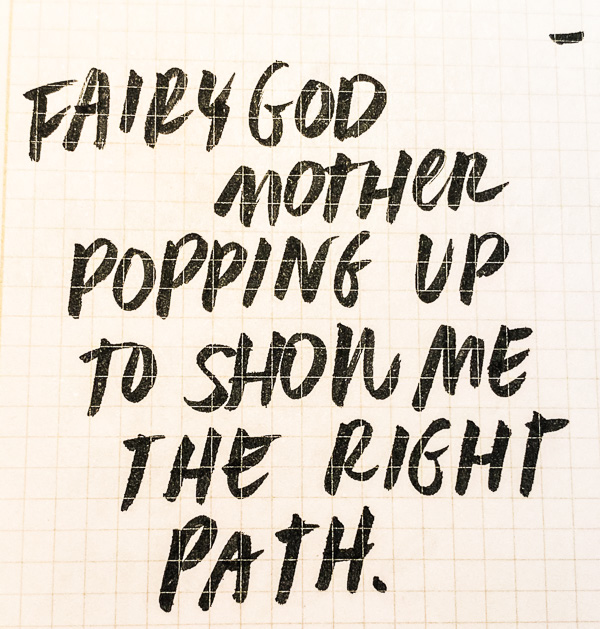 FAIRY GOD
MOTHER
POPPING UP
TO SHOW ME
THE RIGHT
PATH.